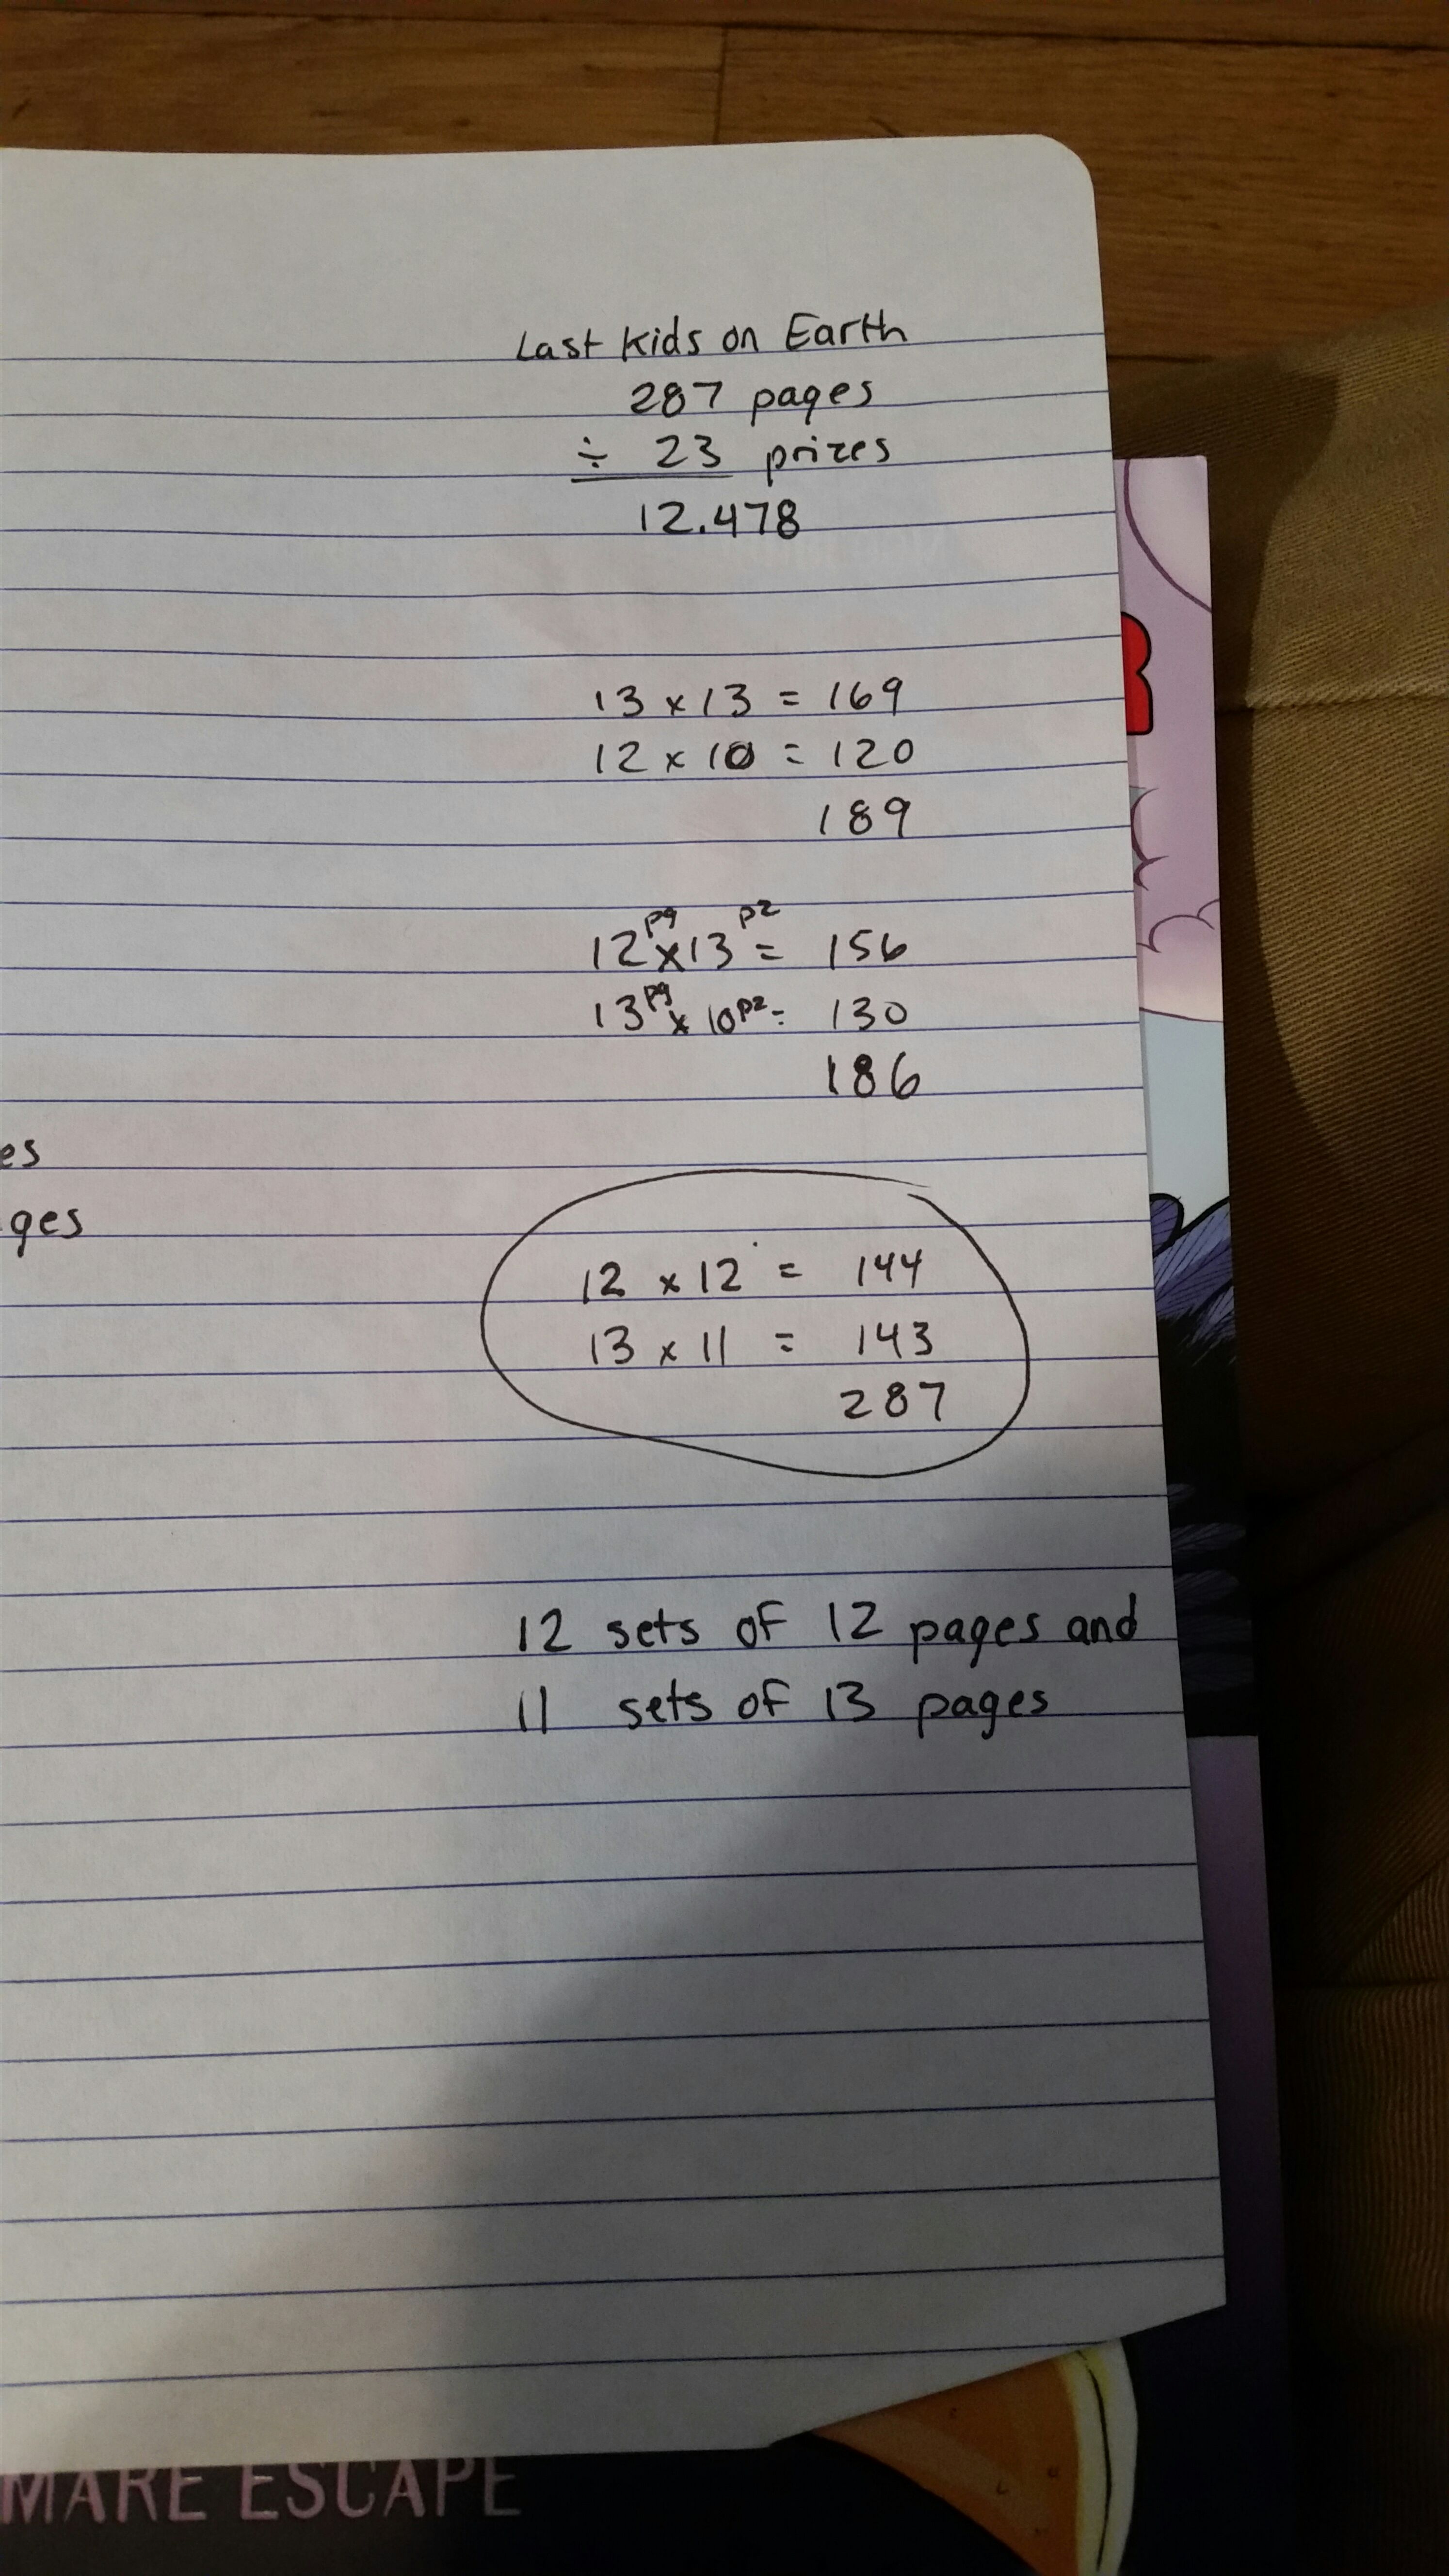 Last Kids on Earth
287 pages
÷ 23 prizes
12.478
13 x 13 = 169
12 x 10 = 120
189
12 pg x 13 pz = 156
13 pg x 10 pz = 130
186
es
ges
12 x 12 = 144
13 x 11 = 143
287
12 sets of 12 pages and
11 sets of 13 pages
MARE ESCAPE